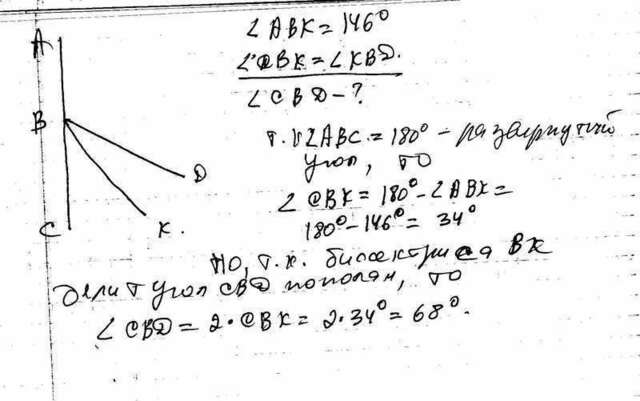 A
B
C
D
K.
∠ABK = 146°
∠CBK = ∠KBD.
∠CBD - ?
т.к ∠ABC = 180° - развернутый
угол, то
∠CBK = 180° - ∠ABK =
180° - 146° = 34°
Но, т.к. биссектриса BK
делит угол CBD пополам, то
∠CBD = 2 · CBK = 2 · 34° = 68°.